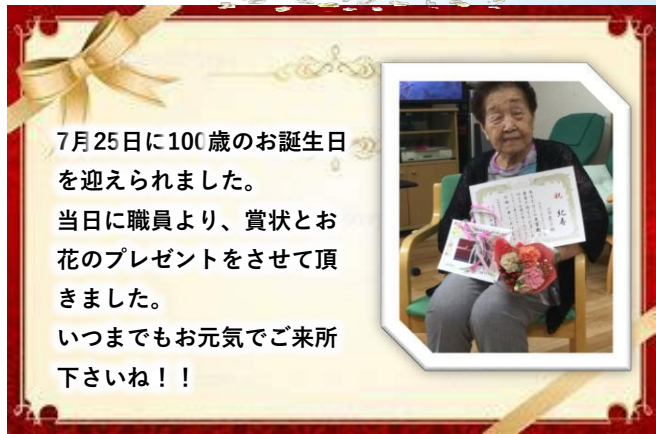 7月25日に100歳のお誕生日
を迎えられました。
当日に職員より、賞状とお
花のプレゼントをさせて頂
きました。
いつまでもお元気でご来所
下さいね！！
祝
紀寿